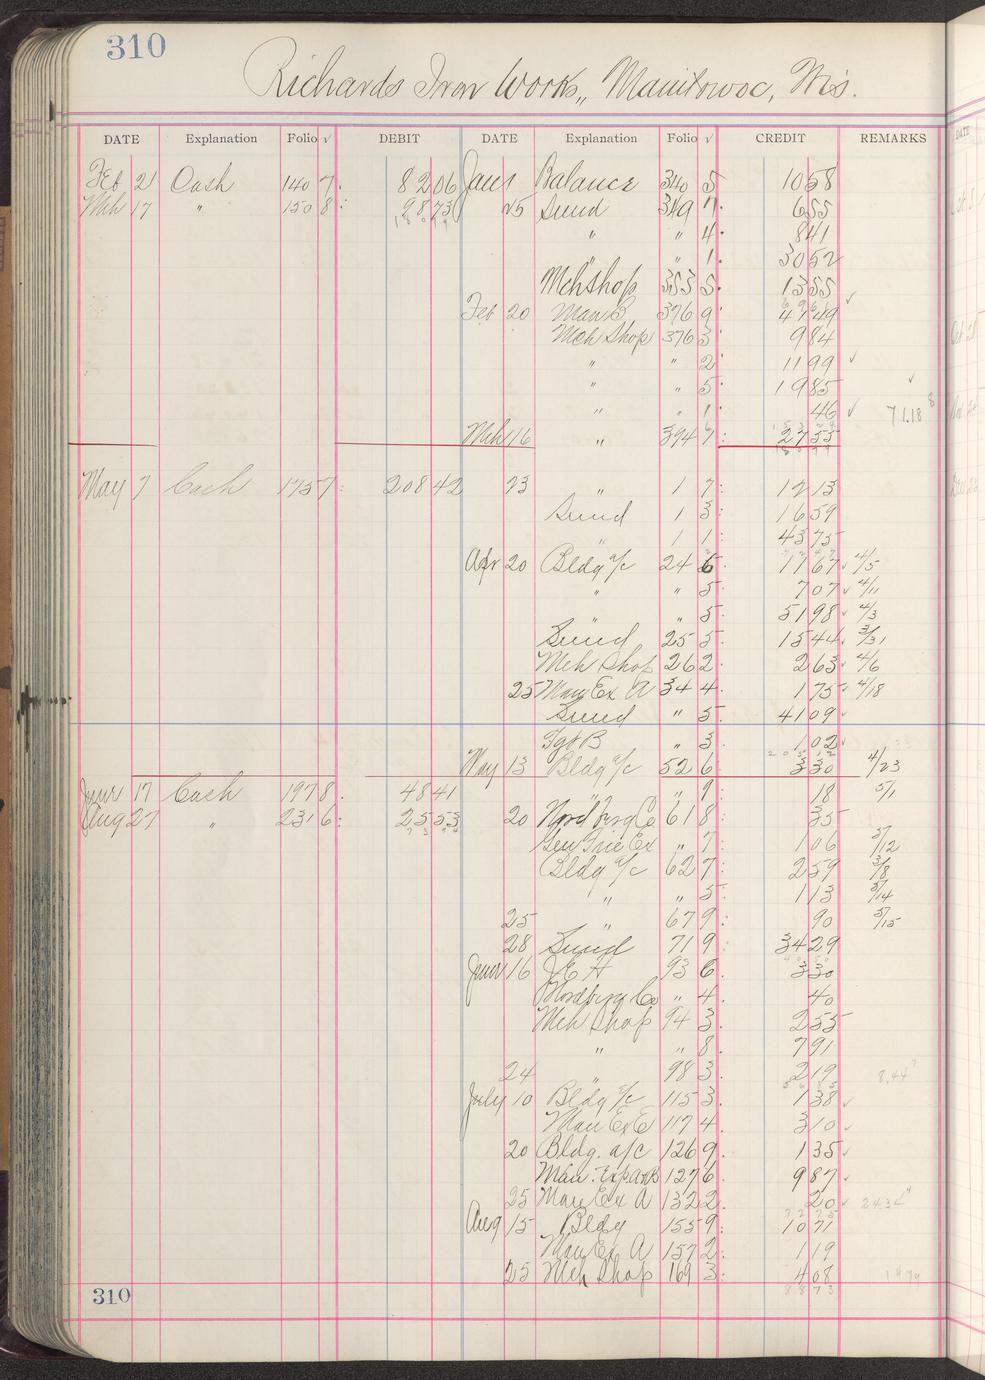 310
Richards Iron Works,, Manitowoc, Wis.
DATE Explanation Folio √ DEBIT DATE Explanation Folio √ CREDIT REMARKS
Feb 21 Cash 140 7. 82 06 Jan 1 Balance 340 5 10 58
Mch 17 " 150 8: 98 73 25 Sund 349 7. 6 55
" " 4. 8 41
" " 1. 30 52
Mch Shop 353 5. 13 55
Feb 20 Man B 376 9. 47 49
Mch Shop 376 3. 9 84
" " 2. 11 99 ✓
" " 5. 19 85
" " 1. 46 ✓ 71.18
Mch 16 " 394 7: 27 55
May 7 Cash 175 7: 208 42 23 " 1 7: 12 13
Sund 1 3: 16 59
1 1: 43 75
Apr 20 Bldg a/c 24 6. 17 67 ✓ 4/5
" " 5. 7 07 ✓ 4/11
" 5. 51 98 ✓ 4/3
Sund 25 5. 15 44 ✓ 3/31
Mch Shop 26 2. 2 63 ✓ 4/6
25 Man Ex A 34 4. 1 75 ✓ 4/18
Sund " 5. 41 09 ✓
" 3. 1 02 ✓
May 13 Bldg a/c 52 6: 3 30 4/23
June 17 Cash 197 8. 48 41 " 9: 18 5/1
Aug 27 " 231 6: 25 53 20 Nord berg Co 61 8: 35
" 7: 1 06 5/12
Bldg a/c 62 7: 2 59 5/8
" " 5. 1 13 5/14
25 " 67 9: 90 5/15
28 Sund 71 9: 34 29
June 16 J.E.H 93 6. 3 30
Nordberg Co " 4. 40
Mch Shop 94 3. 2 55
" " 8. 7 91
24 " 98 3. 2 19 8.44
July 10 Bldg a/c 115 3. 1 38 ✓
Man Ex E 117 4 3 10 ✓
20 Bldg. a/c 126 9. 1 35 ✓
Man. Exp a/c B 127 6. 9 87 ✓
25 Man Ex A 132 2. 20 ✓
Aug 15 Bldg 155 9: 10 71
Man Ex A 157 2: 1 19
25 Mch Shop 169 3: 4 08
310